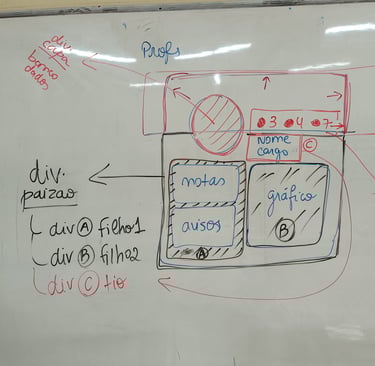 div.
capa
banco
dados
Profs
3 4 7
nome
cargo
C
div.
paizao
notas
avisos
gráfico
B
A
div A filho1
div B filho2
div C tio